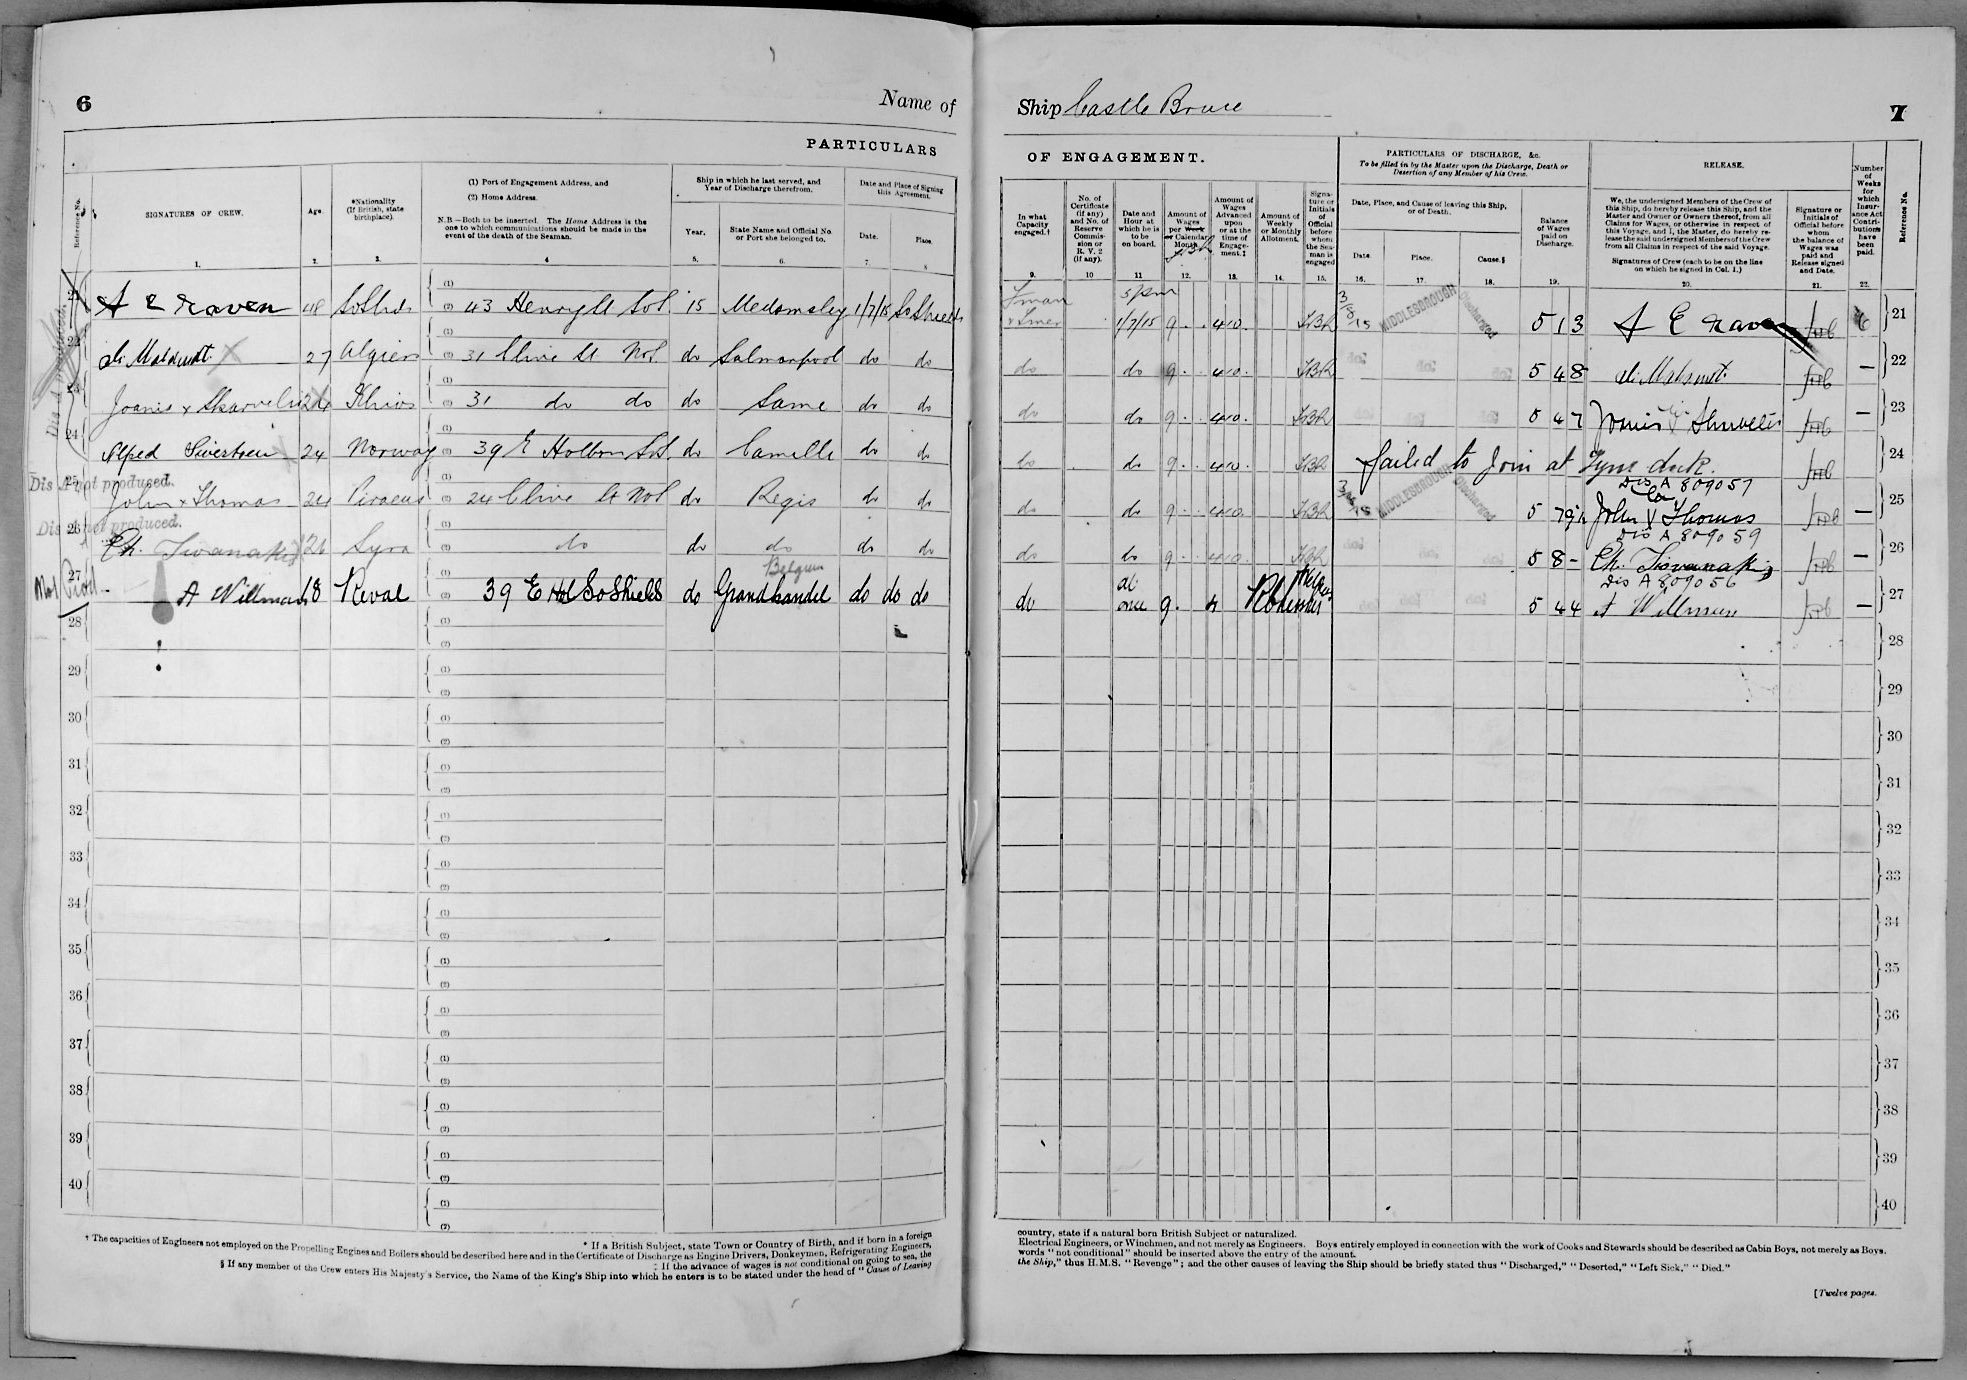 6
Name of
PARTICULARS
Reference No.
SIGNATURES OF CREW.
Age.
*Nationality
(If British, state
birthplace).
(1) Port of Engagement Address, and
(2) Home Address.
N.B.—Both to be inserted. The Home Address is the
one to which communications should be made in the
event of the death of the Seaman.
Ship in which he last served, and
Year of Discharge therefrom.
Year.
State Name and Official No.
or Port she belonged to.
Date and Place of Signing
this Agreement.
Date.
Place.
1. 2. 3. 4 5. 6. 7. 8
21 A E Raven 48 So Shds (1) (2) 43 Henry St So S. 15 Medomsley 1/7/15 So Shields
22 27 Algiers (1) (2) 31 Clive St No S do do do
23 Joanis x 24 Khios (1) (2) 31 do do do Same do do
24 Alfred 24 Norway (1) (2) 39 E Holborn So S. do Camille do do
Dis A not produced.
25 John x Thomas 24 Piraeus (1) (2) 24 Clive St No S do Regis do do
Dis A not produced.
26 Ch. 26 Syra (1) (2) do do do do do
Belgium
27 A Willman 18 Reval (1) (2) 39 E Hol So Shields do Grandhandel do do do
28 (1) (2)
29 (1) (2)
30 (1) (2)
31 (1) (2)
32 (1) (2)
33 (1) (2)
34 (1) (2)
35 (1) (2)
36 (1) (2)
37 (1) (2)
38 (1) (2)
39 (1) (2)
40 (1) (2)
* If a British Subject, state Town or Country of Birth, and if born in a foreign
† The capacities of Engineers not employed on the Propelling Engines and Boilers should be described here and in the Certificate of Discharge as Engine Drivers, Donkeymen, Refrigerating Engineers,
‡ If the advance of wages is not conditional on going to sea, the
§ If any member of the Crew enters His Majesty's Service, the Name of the King's Ship into which he enters is to be stated under the head of "Cause of Leaving
Ship Castle Bruce
7
OF ENGAGEMENT.
PARTICULARS OF DISCHARGE, &c.
To be filled in by the Master upon the Discharge, Death or
Desertion of any Member of his Crew.
RELEASE.
In what
Capacity
engaged.†
No. of
Certificate
(if any)
and No. of
Reserve
Commis-
sion or
R. V. 2
(if any).
Date and
Hour at
which he is
to be
on board.
Amount of
Wages
per Week
or Calendar
Month.
Amount of
Wages
Advanced
upon
or at the
time of
Engage-
ment.‡
Amount of
Weekly
or Monthly
Allotment.
Signa-
ture or
Initials
of
Official
before
whom
the Sea-
man is
engaged
Date, Place, and Cause of leaving this Ship,
or of Death.
Date.
Place.
Cause.§
Balance
of Wages
paid on
Discharge.
We, the undersigned Members of the Crew of
this Ship, do hereby release this Ship, and the
Master and Owner or Owners thereof, from all
Claims for Wages, or otherwise in respect of
this Voyage, and I, the Master, do hereby re-
lease the said undersigned Members of the Crew
from all Claims in respect of the said Voyage.
Signatures of Crew (each to be on the line
on which he signed in Col. 1.)
Signature or
Initials of
Official before
whom
the balance of
Wages was
paid and
Release signed
and Date.
Number
of
Weeks
for
which
Insur-
ance Act
Contri-
butions
have
been
paid.
Reference No.
9. 10 11 12. 13. 14. 15. 16. 17. 18. 19. 20. 21. 22.
5 pm
1/7/15 9 . . 4 10 . 3/8/15 MIDDLESBOROUGH Discharged 5 1 3 A E Raven 6 21
do do 9 . . 4 10 . 5 4 8 — 22
do do 9 . . 4 10 . 5 4 7 — 23
do do 9 . . 4 10 . failed to join at Tyne dock. 24
Dis A 809057
do do 9 . . 4 10 . 3/8/15 MIDDLESBOROUGH Discharged 5 John x Thomas — 25
Dis A 809059
do do 9 . . 4 10 . 5 8 - Ch. — 26
Dis A 809056
do at once 9 . 4 5 4 4 A Willman — 27
28
29
30
31
32
33
34
35
36
37
38
39
40
country, state if a natural born British Subject or naturalized.
Electrical Engineers, or Winchmen, and not merely as Engineers. Boys entirely employed in connection with the work of Cooks and Stewards should be described as Cabin Boys, not merely as Boys.
words "not conditional" should be inserted above the entry of the amount.
the Ship," thus H.M.S. "Revenge"; and the other causes of leaving the Ship should be briefly stated thus "Discharged," "Deserted," "Left Sick," "Died."
[Twelve pages.